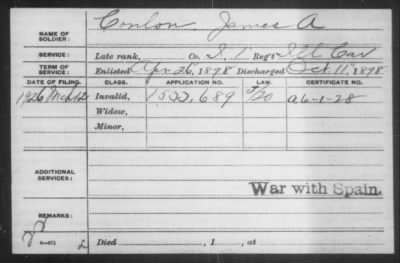 NAME OF SOLDIER: Conlon, James A
SERVICE: Late rank, Co. I, 1 Reg't Ill Cav
TERM OF SERVICE: Enlisted Apr 26, 1898 Discharged Oct. 11, 1898
DATE OF FILING. CLASS. APPLICATION NO. LAW. CERTIFICATE NO.
1926 Mch 12 Invalid, 1532,689 A6-1-28
Widow,
Minor,
ADDITIONAL SERVICES:
War with Spain.
REMARKS:
6-471 2 Died , 1 , at